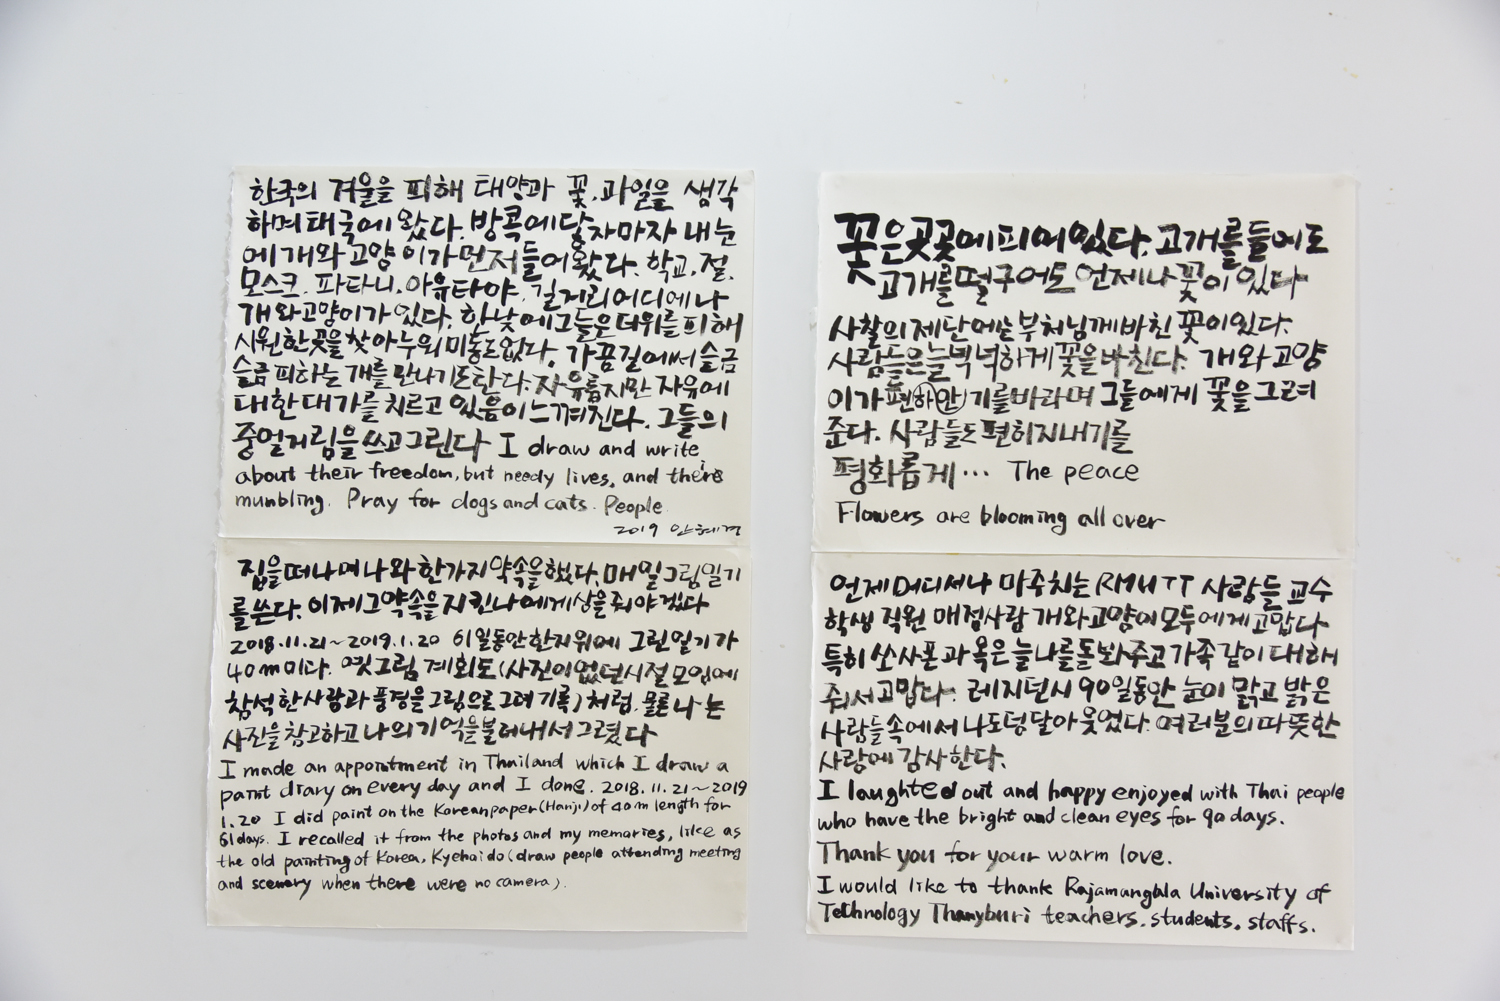 한국의 겨울을 피해 태양과 꽃, 과일을 생각
하며 태국에 왔다. 방콕에 당자마자 내 눈
에 개와 고양이가 먼저 들어왔다. 학교, 절,
모스크. 파타니. 아유타야. 길거리 어디에나
개와 고양이가 있다. 한낮에 그들은 더위를 피해
시원한 곳을 찾아 누워 미동도 없다. 가끔 길에서 슬금
슬금 피하는 개를 만나기도 한다. 자유롭지만 자유에
대한 대가를 치르고 있음이 느껴진다. 그들의
중얼거림을 쓰고 그린다 I draw and write
about their freedom, but needy lives, and their
mumbling. Pray for dogs and cats. People
2019 안혜경
집을 떠나며 나와 한가지 약속을 했다. 매일 그림일기
를 쓴다. 이제 그 약속을 지킨 나에게 상을 줘야겠다
2018.11.21~2019.1.20 61일동안 한지위에 그린 일기가
40m이다. 옛그림 계회도(사진이 없던 시절 모임에
참석한 사람과 풍경을 그림으로 그려 기록)처럼. 물론 나는
사진을 참고하고 나의 기억을 불러내서 그렸다
I made an appointment in Thailand which I draw a
paint diary on every day and I done. 2018.11.21~2019
1.20 I did paint on the Korean paper(Hanji) of 40m length for
61days. I recalled it from the photos and my memories, like as
the old painting of Korea, Kyehaido (draw people attending meeting
and scenery when there were no camera).
꽃은 곳곳에 피어있다. 고개를 들어도
고개를 떨구어도 언제나 꽃이 있다
사찰의 제단에는 부처님께 바친 꽃이 있다.
사람들은 늘 넉넉하게 꽃을 바친다. 개와 고양
이가 편하기를 바라며 그들에게 꽃을 그려
준다. 사람들도 편히 지내기를
평화롭게... The peace
Flowers are blooming all over
언제 어디서나 마주치는 RMUTT 사람들 교수
학생 직원 매점사람 개와 고양이 모두에게 고맙다
특히 쏘사폰과 욕은 늘 나를 돌봐주고 가족같이 대해
줘서 고맙다. 레지던시 90일동안 눈이 맑고 밝은
사람들 속에서 나도 덩달아 웃었다. 여러분의 따뜻한
사랑에 감사한다.
I laughted out and happy enjoyed with Thai people
who have the bright and clean eyes for 90 days.
Thank you for your warm love.
I would like to thank Rajamangala University of
Technology Thanyburi teachers, students, staffs.